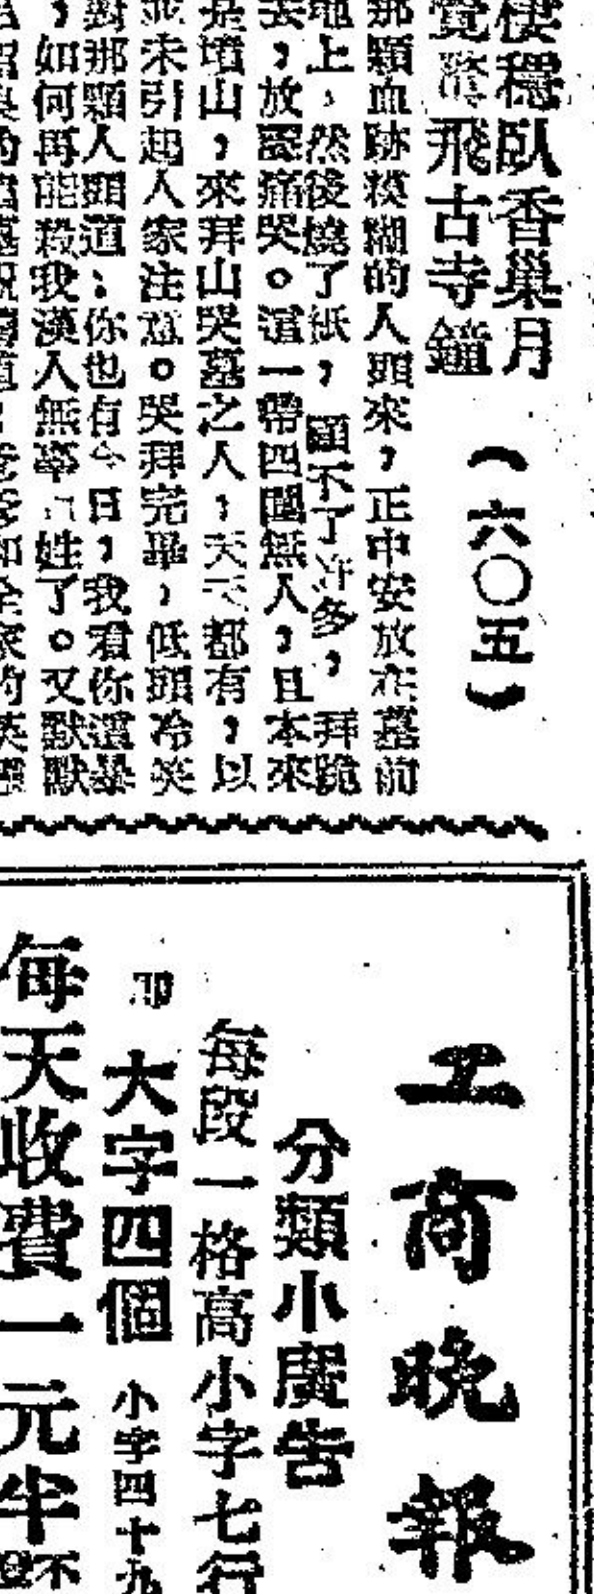 棲穩臥香巢月
覺飛古寺鐘
（六〇五）
那顆血跡模糊的人頭來，正中安放在墓前
地上，然後燒了紙，顧不了許多，拜跪
去，放聲痛哭。這一帶四圍無人，且本來
是墳山，來拜山哭墓之人，天天都有，以
並未引起人家注意。哭拜完畢，低頭冷笑
對那顆人頭道：你也有今日，我看你這暴
，如何再能殺我漢人無辜百姓了。又默默
工商晚報
分類小廣告
每段一格高小字七行
即大字四個小字四十九
每天收費一元半